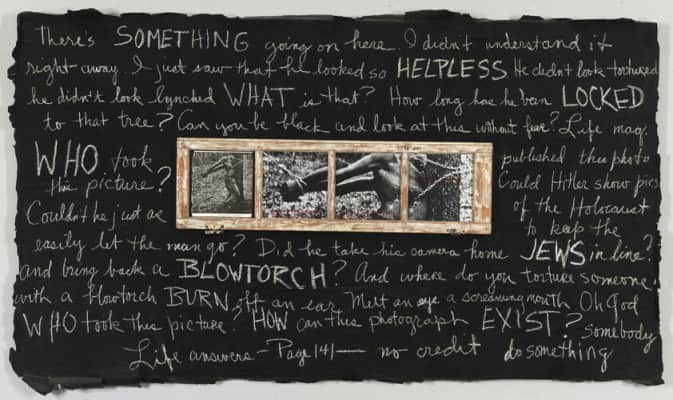 There's SOMETHING going on here. I didn't understand it
right away. I just saw that he looked so HELPLESS He didn't look tortured
he didn't look lynched WHAT is that? How long has he been LOCKED
to that tree? Can you be black and look at this without fear? Life mag.
WHO took this picture?
published this photo
Could Hitler show pics
of the Holocaust
to keep the
JEWS in line?
Couldn't he just as
easily let the man go? Did he take his camera home
and bring back a BLOWTORCH? And where do you torture someone
with a blowtorch BURN off an ear Melt an eye a screaming mouth Oh God
WHO took this picture? HOW can this photograph EXIST? Somebody
do something
Life answers – Page 141 — no credit